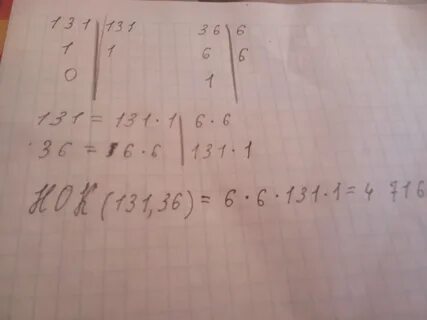 131 | 131 36 | 6
1 | 1 6 | 6
0 | 1 |
131 = 131 · 1 | 6 · 6
36 = 6 · 6 | 131 · 1
НОК (131, 36) = 6 · 6 · 131 · 1 = 4 716